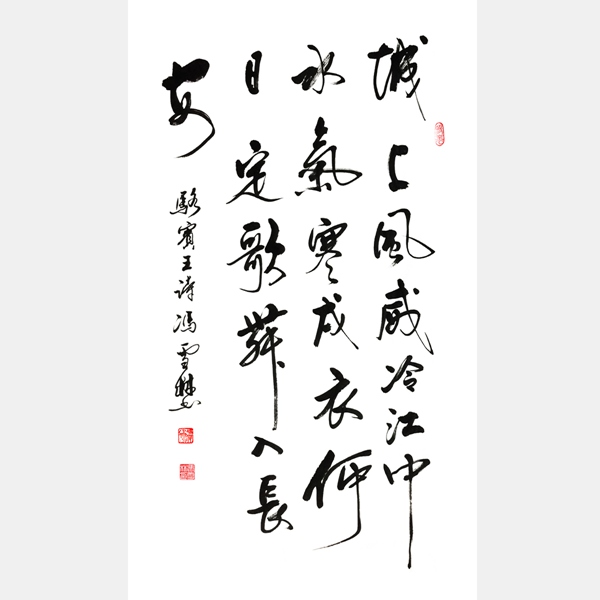 城上風威冷江中
水氣寒戎衣何
日定歌舞入長
安
駱賓王诗冯雪林书